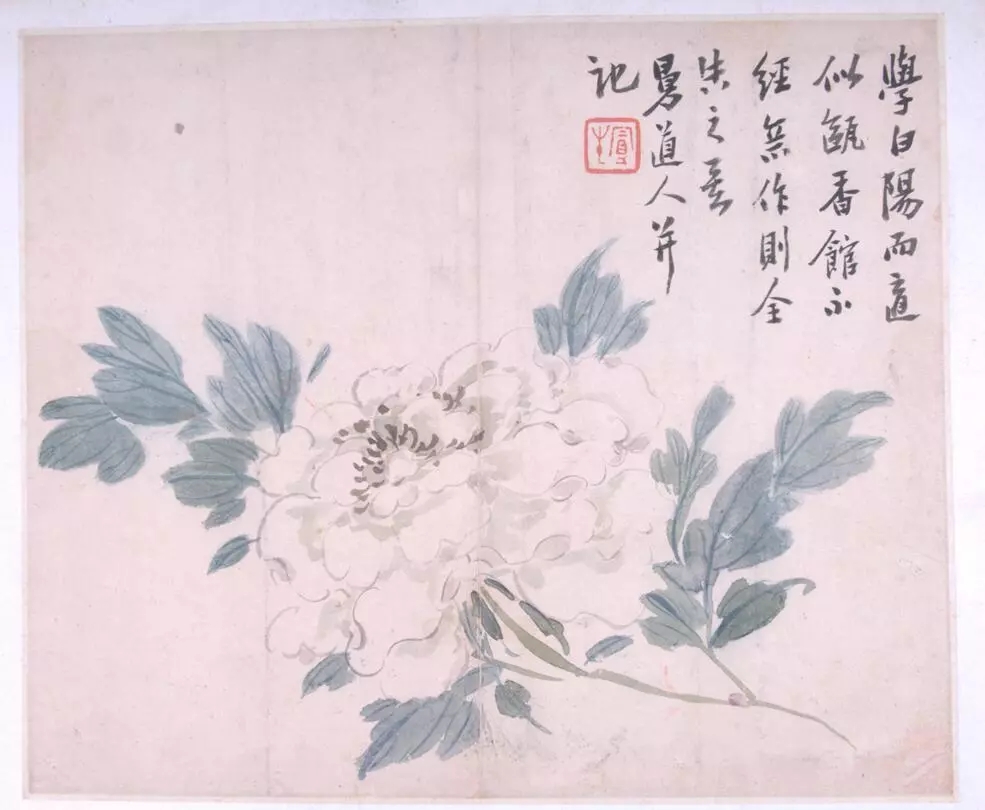 學白陽而適
似甌香館不
經作則全
失之矣
道人并
記